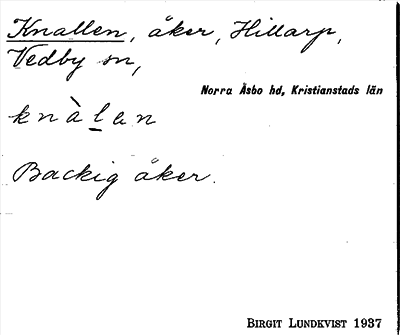 Knallen, åker, Hillarp,
Vedby sn,
Norra Åsbo hd, Kristianstads län
knàlan
Backig åker.
BIRGIT LUNDKVIST 1937